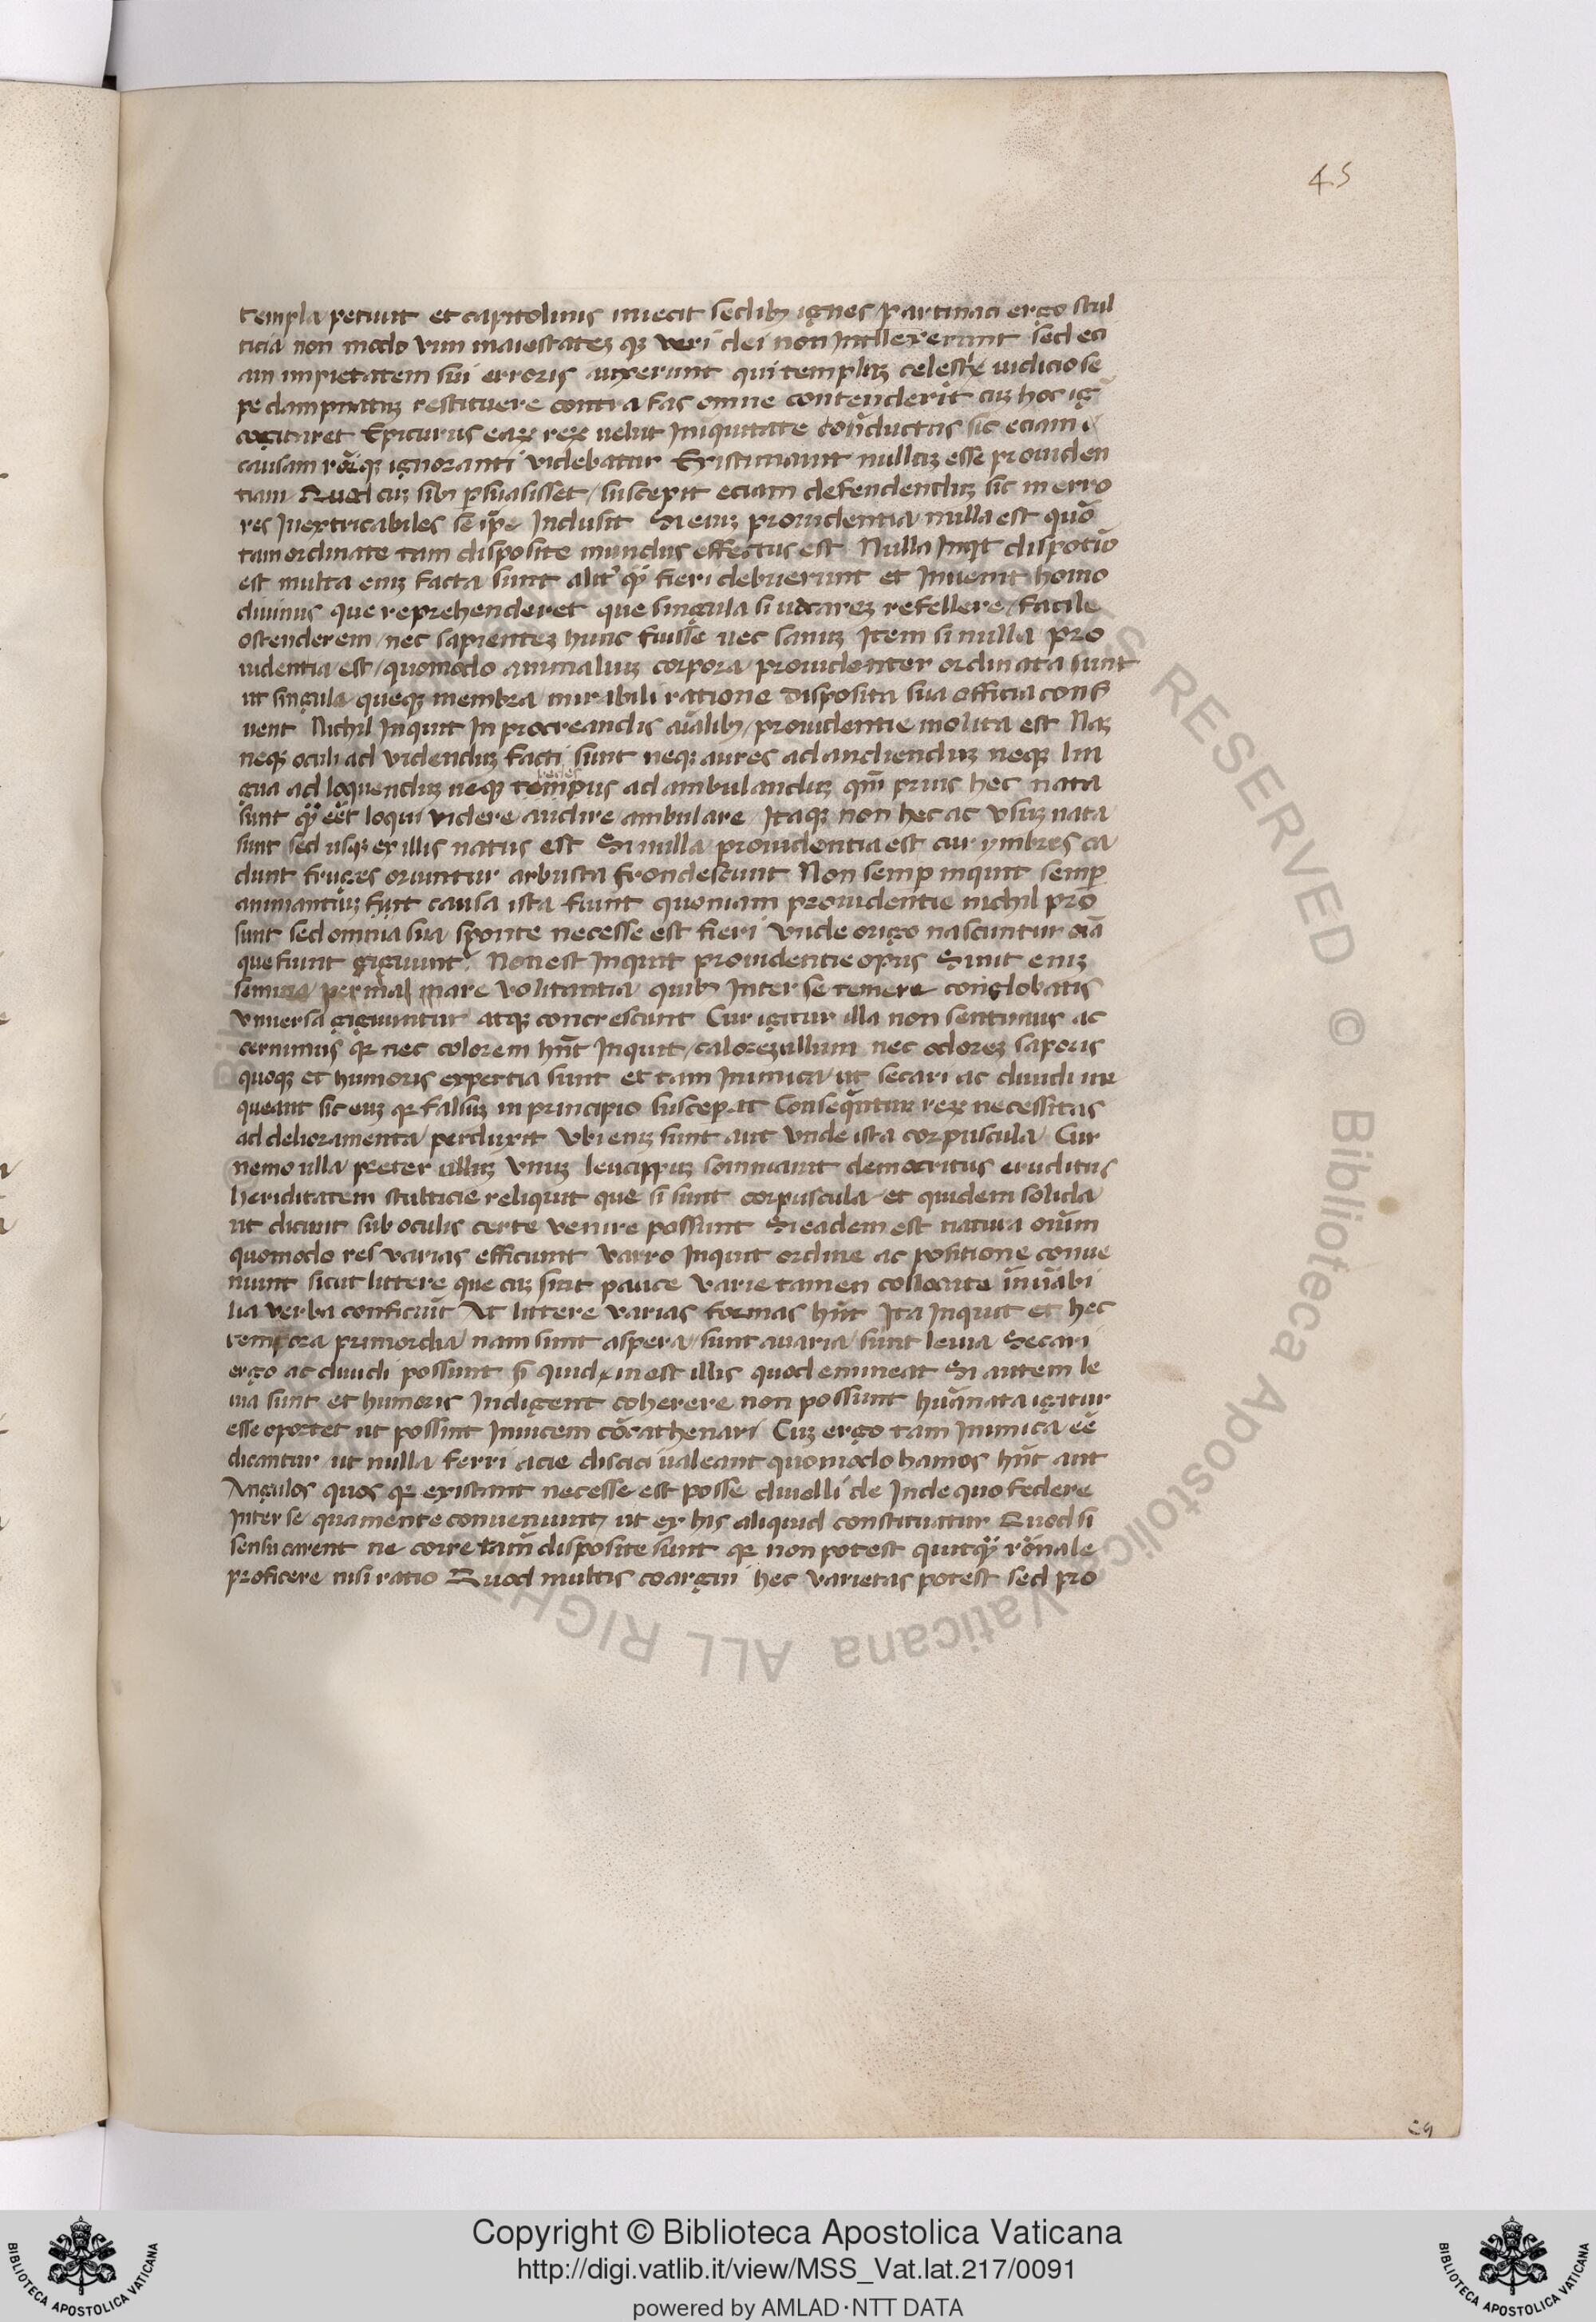 45
templa petiuit et capitolinis iniecit sedibꝫ ignes / partinaci ergo stul
ticia non modo vim maiestateꝫ qꝫ veri dei non Intllexerunt sed eci
am impietatem sui erroris auxerunt qui templuꝫ celeste iudicio se
pe dampnatuꝫ restituere contra fas omne contenderit cuꝫ hoc ig̃
cogitaret Epicurus eaꝝ reꝝ uelut Iniquitate conductus sic eciam
causam rõꝫqꝫ ignoranti videbatur Existimauit nullaꝫ esse prouiden
tiam Quod cuꝫ sibi ꝑsuasisset / suscepit eciam defendenduꝫ sic in erro
res Inextricabiles se ip̃e Inclusit Si eniꝫ prouidentia nulla est quõ
tam ordinate tam disposite mundus effectus est Nulla Inqt dispotio
est multa eniꝫ facta sunt alit᷑ qꝫ fieri debuerunt et Inuenit homo
diuinus que reprehenderet que singula si uacareꝫ refellere / facile
ostenderem / nec sapienteꝫ hunc fuisse nec sanuꝫ Item si nulla pro
uidentia / est / quomodo animaliuꝫ corpora / prouidenter ordinata sunt
ut singula queqꝫ membra mirabili ratione disposita sua officia cons̃
uent Nichil Inquit In procreandis aĩalibꝫ / prouidentie molita est Naꝫ
neqꝫ oculi ad videnduꝫ facti sunt neqꝫ aures ad audienduꝫ neqꝫ lin
gua ad loquenduꝫ neqꝫ tempus pedes ad ambulanduꝫ qm̃ prius hec nata
sunt qꝫ eet loqui videre / audire / ambulare / Itaqꝫ non hec ac vsuꝫ nata
sunt sed usqꝫ ex illis natus est Si nulla prouidentia est cur ymbres ca
dunt fruges oriuntur arbusta frondescunt Non semp̱ inquit semp̱
animantiuꝫ fiũt causa ista fiunt quoniam prouidentie nichil pro
sunt sed omnia sua sponte necesse est fieri Vnde origo nascuntur oĩa
que fiunt gigniunt Non est Inquit prouidentie opus Sunt eniꝫ
semina per mare volitantia quibꝫ Inter se temere conglobatis
vniuersa gigniuntur atqꝫ concrescunt Cur igitur illa non sentimus ac
cernimus qꝛ nec colorem hñt Inquit / caloreꝫ ullum nec odoreꝫ saporis
quoqꝫ et humoris expertia sunt et tam Inimica / ut secari ac diuidi ne
queant sic eniꝫ qꝛ falsuꝫ in principio suscep̱at Consequntur reꝝ necessitas
ad delioramenta / perduxit Vbi eniꝫ sunt aut vnde ista corpuscula Cur
nemo illa preter illuꝫ vnuꝫ leucippuꝫ somniauit democritus eruditus
heriditatem stulticie reliquit que si sunt corpuscula et quidem solida
ut dicunt sub oculis certe venire possunt Si eadem est natura oĩum
quomodo res varias efficiunt varro Inquit ordine ac positione conue
niunt sicut littere que cuꝫ sint pauce varie tamen collocate
lia verba conficiũt At littere varias formas hñt Ita Inquit et hec
tempora primordia nam sunt aspera / sunt auaria / sunt leuia Secari
ergo ac diuidi possunt si quid inest illis quod emineat Si autem le
uia sunt et humoris Indigent coherere non possunt huãnata igitur
esse oportet ut possint Inuicem cõcathenari Cuꝫ ergo tam Inimica eẽ
dicantur ut nulla ferri acie discici ualeant quomodo hamos hñt aut
Angulos quos qꝛ existant necesse est posse diuelli de Inde quo federe
Inter se qua mente conueniunt ut ex his aliquid constituatur Quod si
sensu carent ne coire tam disposite sunt qꝛ non potest quitqꝫ rõnale
proficere nisi ratio Quod multis coargui hec varietas potest sed pro
Copyright © Biblioteca Apostolica Vaticana
http://digi.vatlib.it/view/MSS_Vat.lat.217/0091
powered by AMLAD·NTT DATA